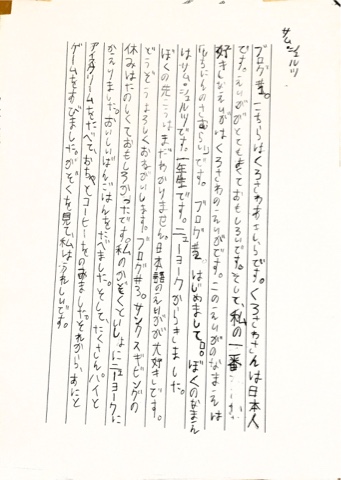 サム・シュルツ
ブログ#1。こちらはくろさわあきらです。くろさわさんは日本人
です。えいががとてもおもしろいです。そして、私の一番
好きなえいがはくろさわのえいがです。このえいがのなまえは
「しちにんのさむらい」です。ブログ#2 はじめまして。ぼくのなまえ
はサム・シュルツです。一年生です。ニューヨークからきました。
ぼくの はまだわかりません。日本語のえいがが大好きです。
どうぞよろしくおねがいします。ブログ#3。サンクスギビングの
休みはたのしくておもしろかったです。私のかぞくといっしょにニューヨークに
かえりました。おいしいばんごはんをたべました。そして、たくさんパイと
アイスクリームをたべて、おちゃとコーヒーをのみました。それから、あにと
ゲームをあそびました。かぞくを見て、私はうれしいです。